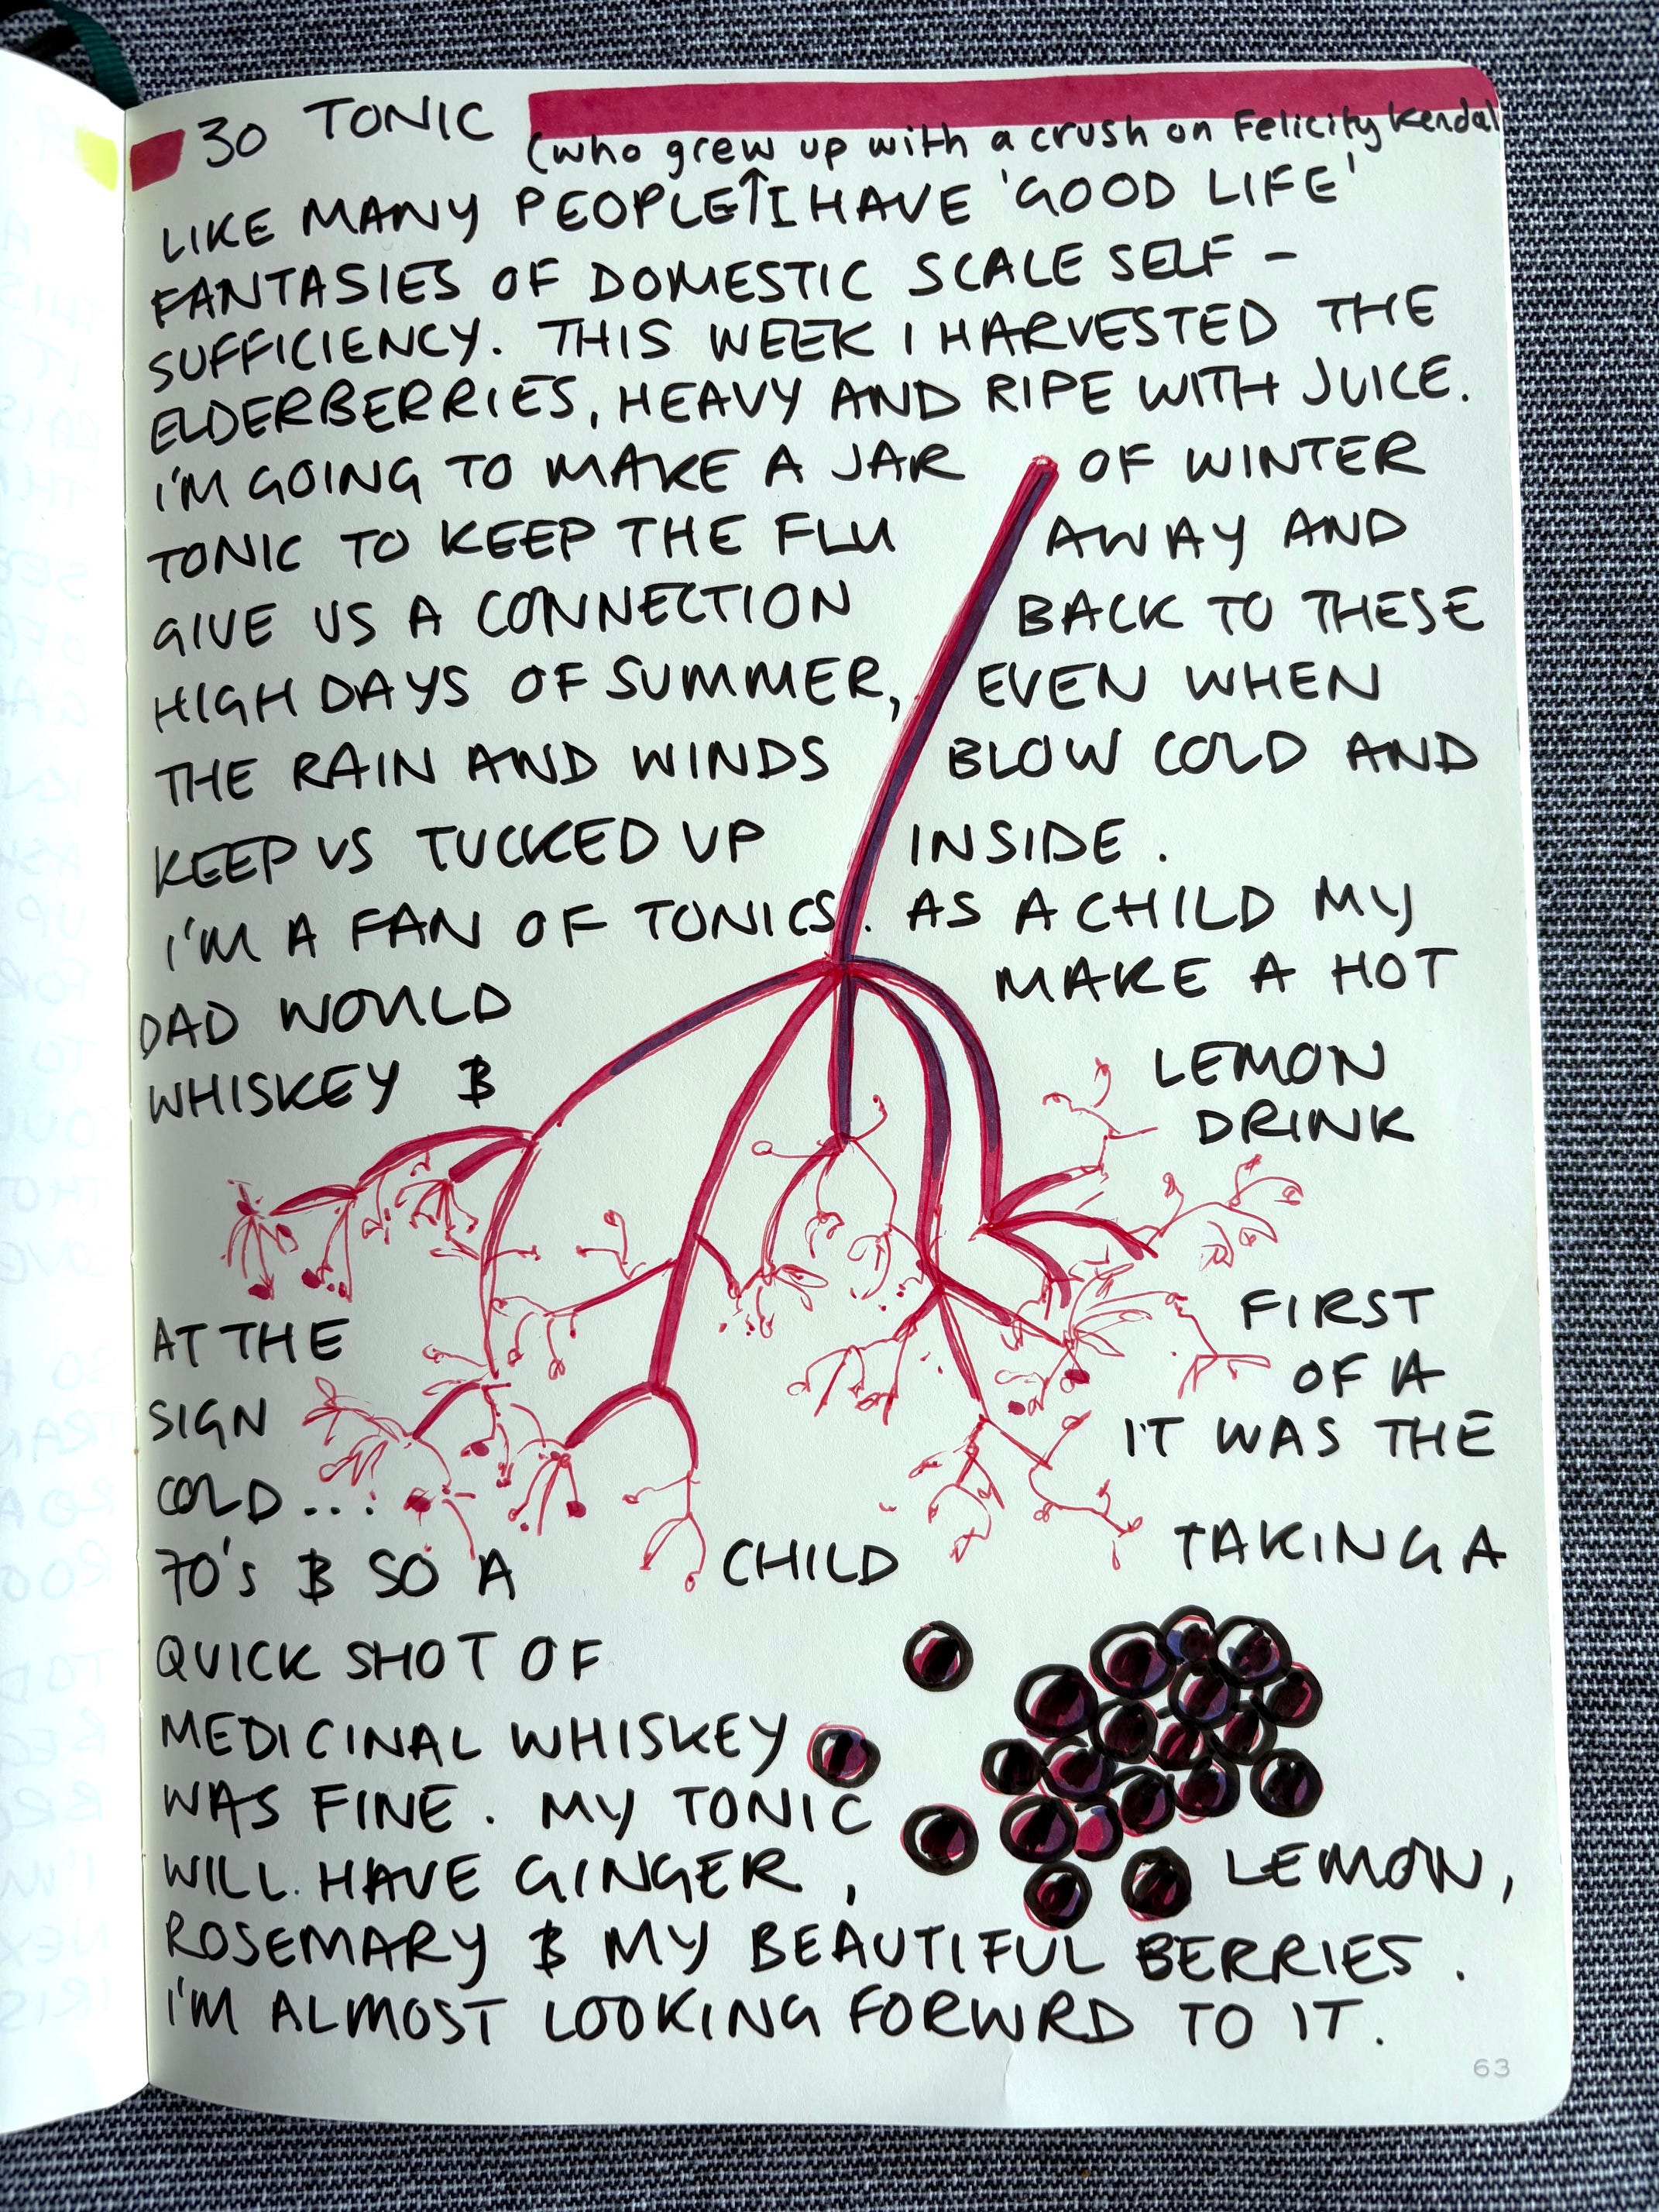 30 TONIC
(who grew up with a crush on Felicity Kendal
LIKE MANY PEOPLE↑I HAVE 'GOOD LIFE'
FANTASIES OF DOMESTIC SCALE SELF -
SUFFICIENCY. THIS WEEK I HARVESTED THE
ELDERBERRIES, HEAVY AND RIPE WITH JUICE.
I'M GOING TO MAKE A JAR OF WINTER
TONIC TO KEEP THE FLU AWAY AND
GIVE US A CONNECTION BACK TO THESE
HIGH DAYS OF SUMMER, EVEN WHEN
THE RAIN AND WINDS BLOW COLD AND
KEEP US TUCKED UP INSIDE.
I'M A FAN OF TONICS. AS A CHILD MY
DAD WOULD MAKE A HOT
WHISKEY & LEMON
DRINK
AT THE FIRST
SIGN OF A
COLD... IT WAS THE
70's & SO A CHILD TAKING A
QUICK SHOT OF
MEDICINAL WHISKEY
WAS FINE. MY TONIC
WILL HAVE GINGER, LEMON,
ROSEMARY & MY BEAUTIFUL BERRIES.
I'M ALMOST LOOKING FORWRD TO IT.
63